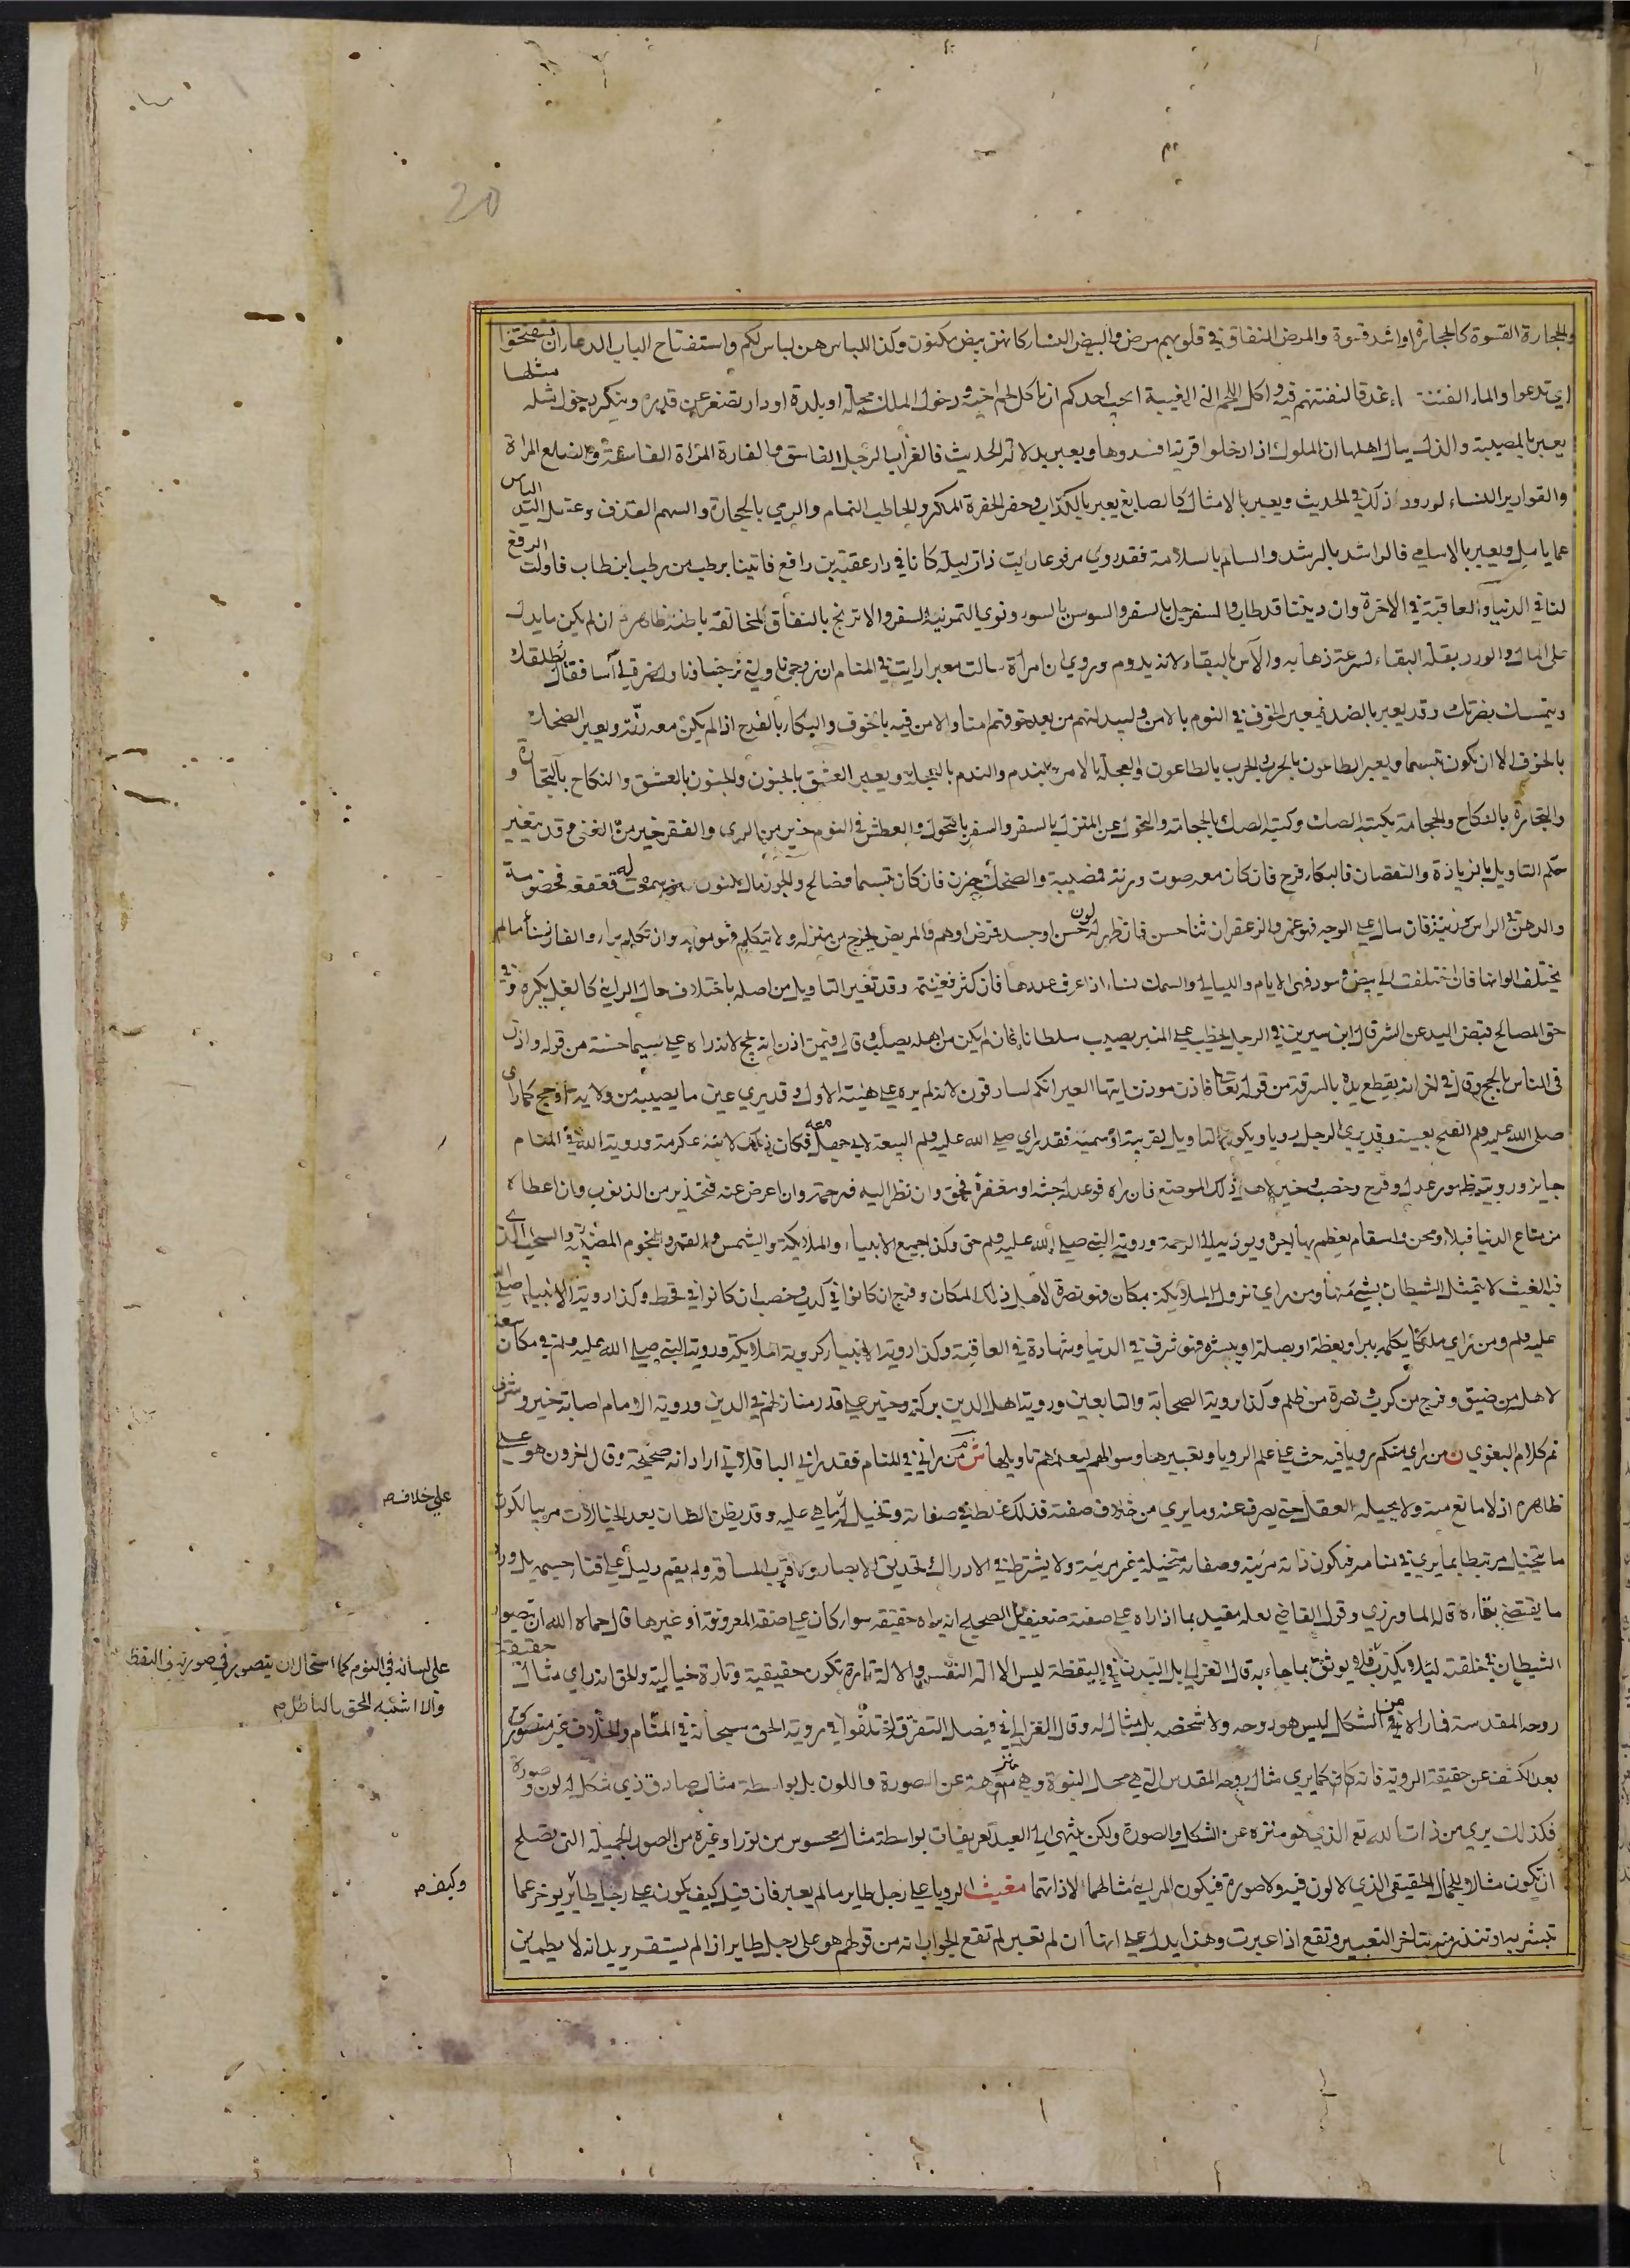 والحجارة القسوة كالحجارة او اشد قسوة والمرض النفاق في قلوبهم مرض والبيض النساء كانهن بيض مكنون وكذا اللباس هن لباس لكم واستفتاح الباب الدعاء ان تستفتحوا
اي تدعوا والماء الفتنة ماء غدقا لنفتنهم فيه واكل اللحم الني الغيبة ايحب احدكم ان ياكل لحم اخيه ودخول الملك محلة او بلدة او دار تصغر عن قدره وينكر دخول مثله مثلها
يعبر بالمصيبة والذل ينال اهلها ان الملوك اذا دخلوا قرية افسدوها ويعبر بدلالة الحديث فالغراب الرجل الفاسق والفارة المراة الفاسقة والضلع المراة
والقوارير النساء لورود ذلك في الحديث ويعبر بالامثال كالصايغ يعبر بالكذاب وحفر الحفرة المكر والحاطب النمام والرمي بالحجارة والسهم القذف وغسل اليد الياس
عما يامل ويعبر بالاسامي فالراشد بالرشد والسالم بالسلامة فقد روي مرفوعا رايت ذات ليلة كانا في دار عقبة بن رافع فاتينا برطب من رطب ابن طاب فاولت الرفع
لنا في الدنيا والعاقبة في الاخرة وان ديننا قد طاب والسفرجل بالسفر والسوسن بالسوء ونوي التمر نية السفر والاترنج بالنفاق لمخالفة باطنه ظاهره ان لم يكن ما يدل
على المال والورد بقلة البقاء لسرعة ذهابه والآس بالبقاء لانه يدوم وروي ان امراة سالت معبرا رايت في المنام ان زوجي ناولني نرجسا وناول ضرتي آسا فقال يطلقك
ويتمسك بضرتك وقد يعبر بالضد فيعبر الخوف في النوم بالامن وليبدلنهم من بعد خوفهم امنا والامن فيه بالخوف والبكاء بالفرح اذا لم يكن معه رنة ويعبر الضحك
بالحزن الا ان يكون تبسما ويعبر الطاعون بالحرب والحرب بالطاعون والعجلة بالامر بالندم والندم بالعجلة ويعبر العشق بالجنون والجنون بالعشق والنكاح بالتجارة و
والتجارة بالنكاح والحجامة بكتبة الصك وكتبة الصك بالحجامة والتحول عن المنزل بالسفر والسفر بالتحول والعطش في النوم خير من الري والفقر خير من الغنى وقد يتغير
حكم التاويل بالزيادة والنقصان فالبكاء فرح فان كان معه صوت ورنة فمصيبة والضحك حزن فان كان تبسما فصالح والجوز مال مكنون فان سمعت له قعقعة فخصومة
والدهن في الراس زينة فان سال على الوجه فهو غم والزعفران ثنا حسن فان ظهر له لون حسن او جسد فمرض او هم والمريض يخرج من منزله ولا يتكلم فهو موته وان تكلم براء والفار نساء ما لم
يختلف الوانها فان اختلفت الى بيض وسود فهي الايام والليالي والسمك نساء اذا عرف عددها فان كثر فغنيمة وقد تغير التاويل من اصله باختلاف حال الراي كالغل يكره وفي
حق الصالح قبض اليد عن الشر قال ابن سيرين في الرجل يخطب على المنبر يصيب سلطانا فان لم يكن من اهله يصلب وقال فيمن اذن انه يحج لانه راه على سيما حسنة من قوله واذن
في الناس بالحج وقال في اخر انه يقطع يده بالسرقة من قوله تعالى فاذن موذن ايتها العير انكم لسارقون لانه لم يره على هيئة الاول وقد يري عين ما يصيبه من ولاية او حج كما راى
صلى الله عليه وسلم الفتح بعينه وقد يري الرجل رويا ويكون التاويل لقريبه او سميه فقد راي صلى الله عليه وسلم البيعة لابي جهل معه فكان ذلك لابنه عكرمة وروية الله في المنام
جايز وروية ظهور عدل وفرح وخصب وخير لاهل ذلك الموضع فان راه فوعد له جنة او مغفرة فحق وان نظر اليه فرحمته وان اعرض عنه فتحذير من الذنوب وان اعطاه
من متاع الدنيا فبلاء ومحن واسقام يعظم بها اجره ويودي الى الرحمة وروية النبي صلى الله عليه وسلم حق وكذا جميع الانبياء والملايكة والشمس والقمر والنجوم المضيئة والسحاب الذي
فيه الغيث لا يتمثل الشيطان بشي منها ومن راي نزول الملايكة بمكان فهو نصرة لاهل ذلك المكان وفرج ان كانوا في كرب وخصب ان كانوا في قحط وكذا روية الانبياء صلى الله
عليه وسلم ومن راي ملكا يكلمه ببر او بعظة او بصلة او يبشره فهو شرف في الدنيا وشهادة في العاقبة وكذا روية الانبياء كروية الملايكة وروية النبي صلى الله عليه وسلم في مكان سعة
لاهله من ضيق وفرج من كرب ونصرة من ظلم وكذا روية الصحابة والتابعين وروية اهل الدين بركة وخير على قدر منازلهم في الدين وروية الامام اصابة خير وشرف
تم كلام البغوي ن من راي منكم رويا فيه حث على علم الرويا وتعبيرها وسوالهم ليعلمهم تاويلها ش م من راني في المنام فقد راني الباقلاني اراد انه صحيحة وقال اخرون هو على
ظاهره اذ لا مانع منه ولا يحيله العقل حتى يصرف عنه وما يري من خلاف صفته فذلك غلط في صفاته وتخيل لها ما هي عليه وقد يظن الظان بعد الخيالات مربيا لكون
ما يتخيل مرتبطا بما يري في منامه فيكون ذاته مرئية وصفاته متخيلة غير مرئية ولا يشترط في الادراك تحديق الابصار ولا قرب المسافة ولم يقم دليل على فنا جسمه بل ورد
ما يقتضي بقاره قال الماورزي وقول القاضي لعله مقيد بما اذا راه على صفته ضعيف بل الصحيح انه يراه حقيقة سوا كان على صفته المعروفة او غيرها قال حماه الله ان يتصور
الشيطان في خلقته ليلا يكذب فلا يوثق بما جاء به قال الغزالي بل البدن في اليقظة ليس الا الة النفس والالة تارة تكون حقيقية وتارة خيالية والحق انه راي مثال حقيقة
روحه المقدسة فما راه من الشكل ليس هو روحه ولا شخصه بل مثال له وقال الغزالي في فيصل التفرقة اختلفوا في روية الحق سبحانه في المنام والخلاف غير متصور
بعد الكشف عن حقيقة الروية فانه كان كما يري مثال روحه المقدس التي هي محل النبوة وهي منزهة عن الصورة واللون بل بواسطة مثال صادق ذي شكل ولون وصورة
فكذلك يري من ذات الله تع الذي هو منزه عن الشكل والصورة ولكن ينتهي الى العبد تعريفات بواسطة مثال محسوس من نور او غيره من الصور الجميلة التي تصلح
ان تكون مثالا للجمال الحقيقي الذي لا لون فيه ولا صورة فيكون المرئي مثالهما لا ذاتهما مغيث الرويا على رجل طاير ما لم يعبر فان قيل كيف يكون على رجل طاير يوخر عما
تبشر به او تنذر منه بتاخر التعبير وتقع اذا عبرت وهذا يدل على انها ان لم تعبر لم تقع الجواب انه من قولهم هو على رجل طاير اذا لم يستقر يريد انه لا يطمئن
على خلافه
على لسانه في النوم كما استحال ان يتصور في صورته في اليقظة
والا اشتبه الحق بالباطل
وكيف
20